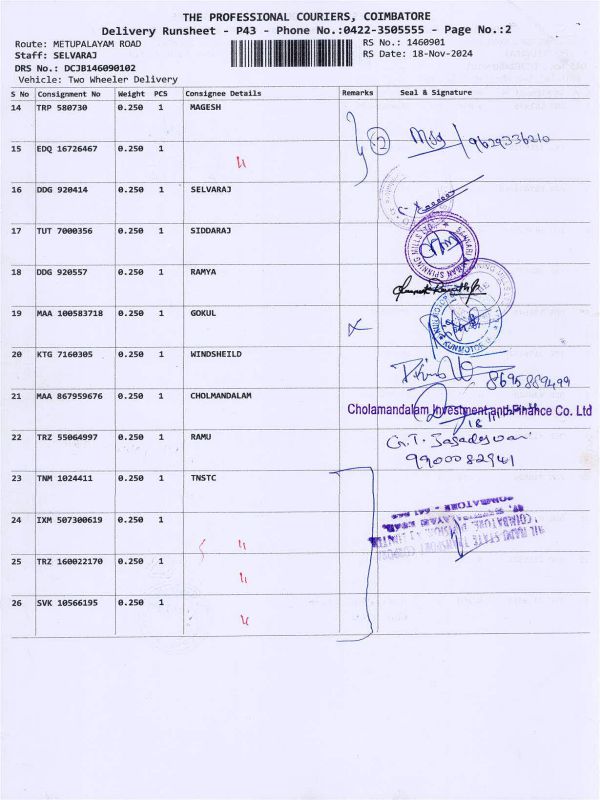 THE PROFESSIONAL COURIERS, COIMBATORE
Delivery Runsheet - P43 - Phone No.:0422-3505555 - Page No.:2
Route: METUPALAYAM ROAD
RS No.: 1460901
Staff: SELVARAJ
RS Date: 18-Nov-2024
DRS No.: DCJB146090102
Vehicle: Two Wheeler Delivery
S No Consignment No Weight PCS Consignee Details Remarks Seal & Signature
14 TRP 580730 0.250 1 MAGESH
9629336210
15 EDQ 16726467 0.250 1
16 DDG 920414 0.250 1 SELVARAJ
17 TUT 7000356 0.250 1 SIDDARAJ
18 DDG 920557 0.250 1 RAMYA
19 MAA 100583718 0.250 1 GOKUL
20 KTG 7160305 0.250 1 WINDSHEILD
8695889499
21 MAA 867959676 0.250 1 CHOLMANDALAM
Cholamandalam Investment and Finance Co. Ltd
22 TRZ 55064997 0.250 1 RAMU
9900082941
23 TNM 1024411 0.250 1 TNSTC
24 IXM 507300619 0.250 1
25 TRZ 160022170 0.250 1
26 SVK 10566195 0.250 1